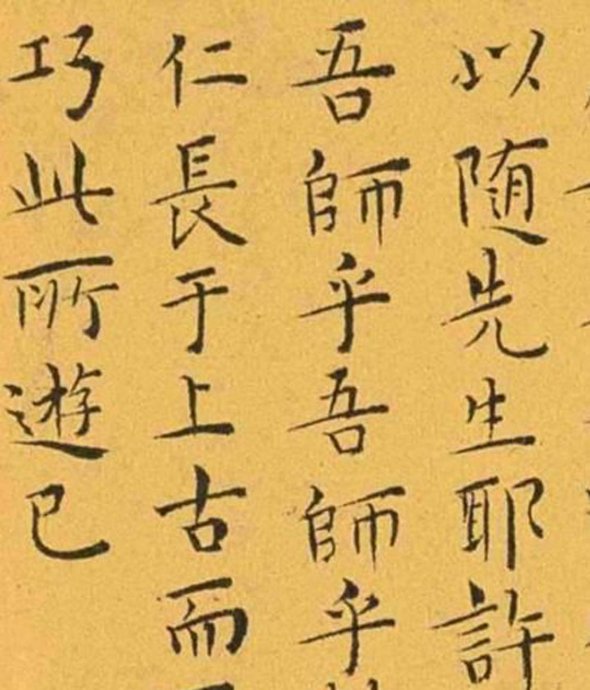 以随先生耶許
吾師乎吾師乎
仁長于上古而
巧此所遊已